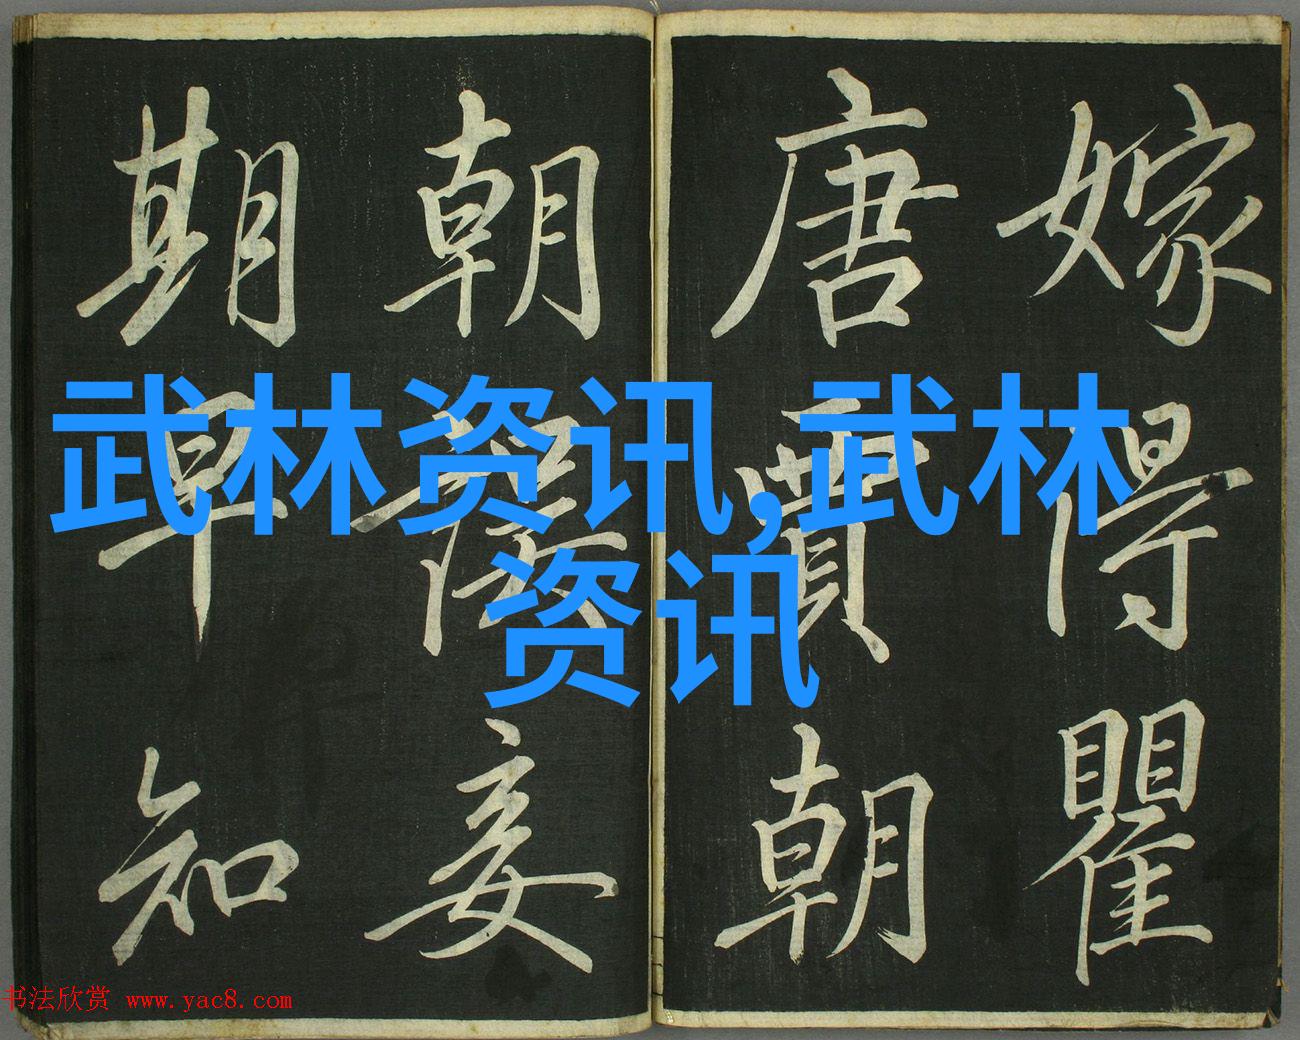 嫁得瞿
唐賈朝
朝妾
期早知
武林资讯,武林
资讯
书法欣赏 www.yac8.com